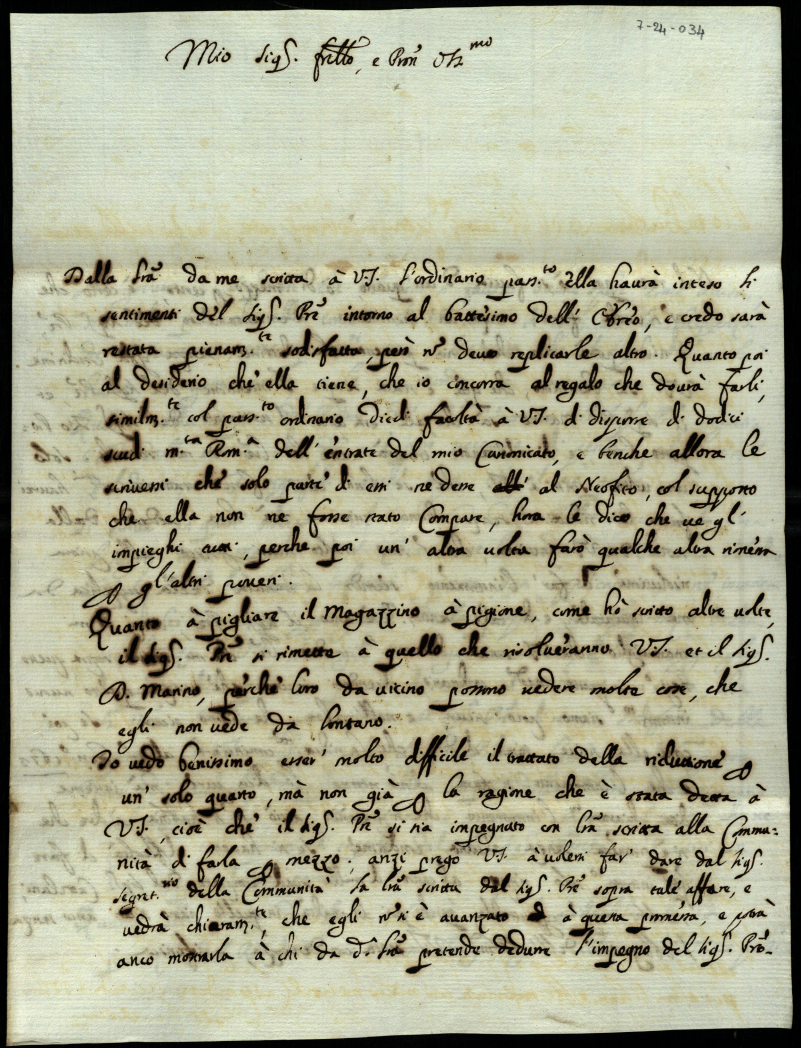 7-24-034
Mio Sig.r frello, e Pron
Dalla lra da me scritta à V.S. l'ordinario pass.to ella haurà inteso li
sentimenti del Sig.r Pre intorno al battesimo dell' Ebreo, e credo sarà
restata pienam.te sodisfatta, però nõ devo replicarle altro. Quanto poi
al desiderio che ella tiene, che io concorra al regalo che dourà farli,
similm.te col pass.to ordinario diedi facoltà à V.S. di disporre di dodici
scudi m.ta Rom.a dell' entrate del mio Canonicato, e benche allora le
scrivessi che solo parte di essi ne desse al Neofito, col supposto
che ella non ne fosse stato Compare, hora le dico che ve gl'
impieghi tutti, perche poi un' altra volta farò qualche altra rimessa
p gl'altri poveri.
Quanto à pigliare il Magazzino à pigione, come hò scritto altre volte,
il Sig.r Pre si rimette à quello che risolveranno V.S. et il Sig.r
D. Marino, perche loro da vicino possono vedere molte cose, che
egli non vede da lontano.
Io vedo benissimo esser' molto difficile il trattato della riduttione p
un' solo quarto, mà non già p la ragione che è stata detta à
V.S., cioè che il Sig.r Pre si sia impegnato con lra scritta alla Commu-
nità di farla p mezzo; anzi prego V.S. à voleri far' dare dal Sig.r
Segret.rio della Communità la lra scritta dal Sig.r Pre sopra tale affare, e
vedrà chiaram.te, che egli nõ si è avanzato à questa promessa, e potrà
anco mostrarla à chi da d.a lra pretende dedurre l'impegno del Sig.r Pre.